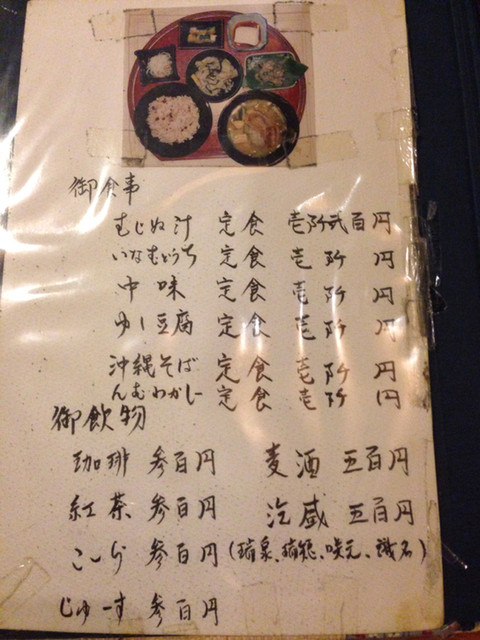 御食事
むじぬ汁 定食 壱阡弐百円
いなむどぅち 定食 壱阡円
中味 定食 壱阡円
ゆし豆腐 定食 壱阡円
沖縄そば 定食 壱阡円
んむわかしー 定食 壱阡円
御飲物
珈琲 参百円 麦酒 五百円
紅茶 参百円 泡盛 五百円
こーら 参百円 (瑞泉、瑞穂、咲元、識名)
じゅーす 参百円